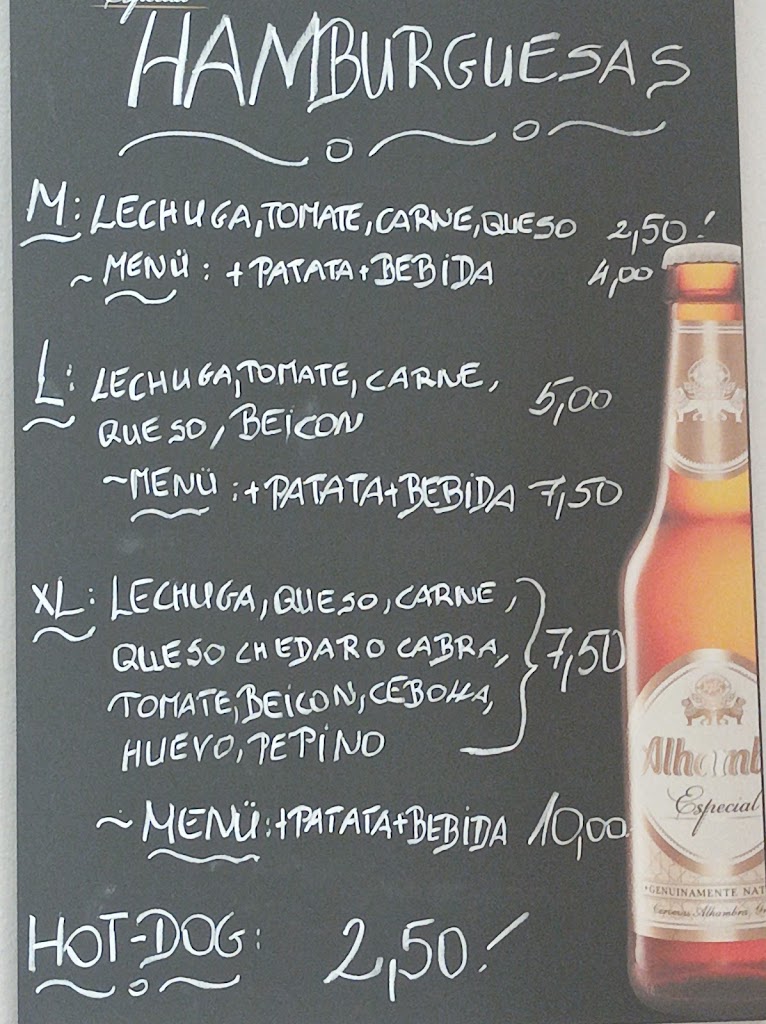 Especial
HAMBURGUESAS
M: LECHUGA, TOMATE, CARNE, QUESO 2,50!
~ MENÜ: + PATATA + BEBIDA 4,00
L: LECHUGA, TOMATE, CARNE, 5,00
QUESO, BEICON
~ MENÜ: + PATATA + BEBIDA 7,50
XL: LECHUGA, QUESO, CARNE,
QUESO CHEDAR O CABRA, 7,50
TOMATE, BEICON, CEBOLLA,
HUEVO, PEPINO
~ MENÜ: + PATATA + BEBIDA 10,00
HOT-DOG: 2,50!
Alhamb
Especial
GENUINAMENTE NAT
Cervezas Alhambra,